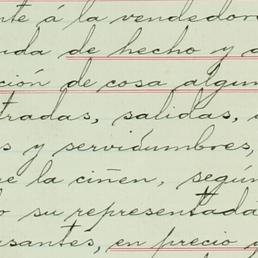 nte á la vendedora
uda de hecho y d
ción de cosa algun
tradas, salidas, u
s y servidumbres,
re la ciñen, según
o su representada
usantes, en precio y